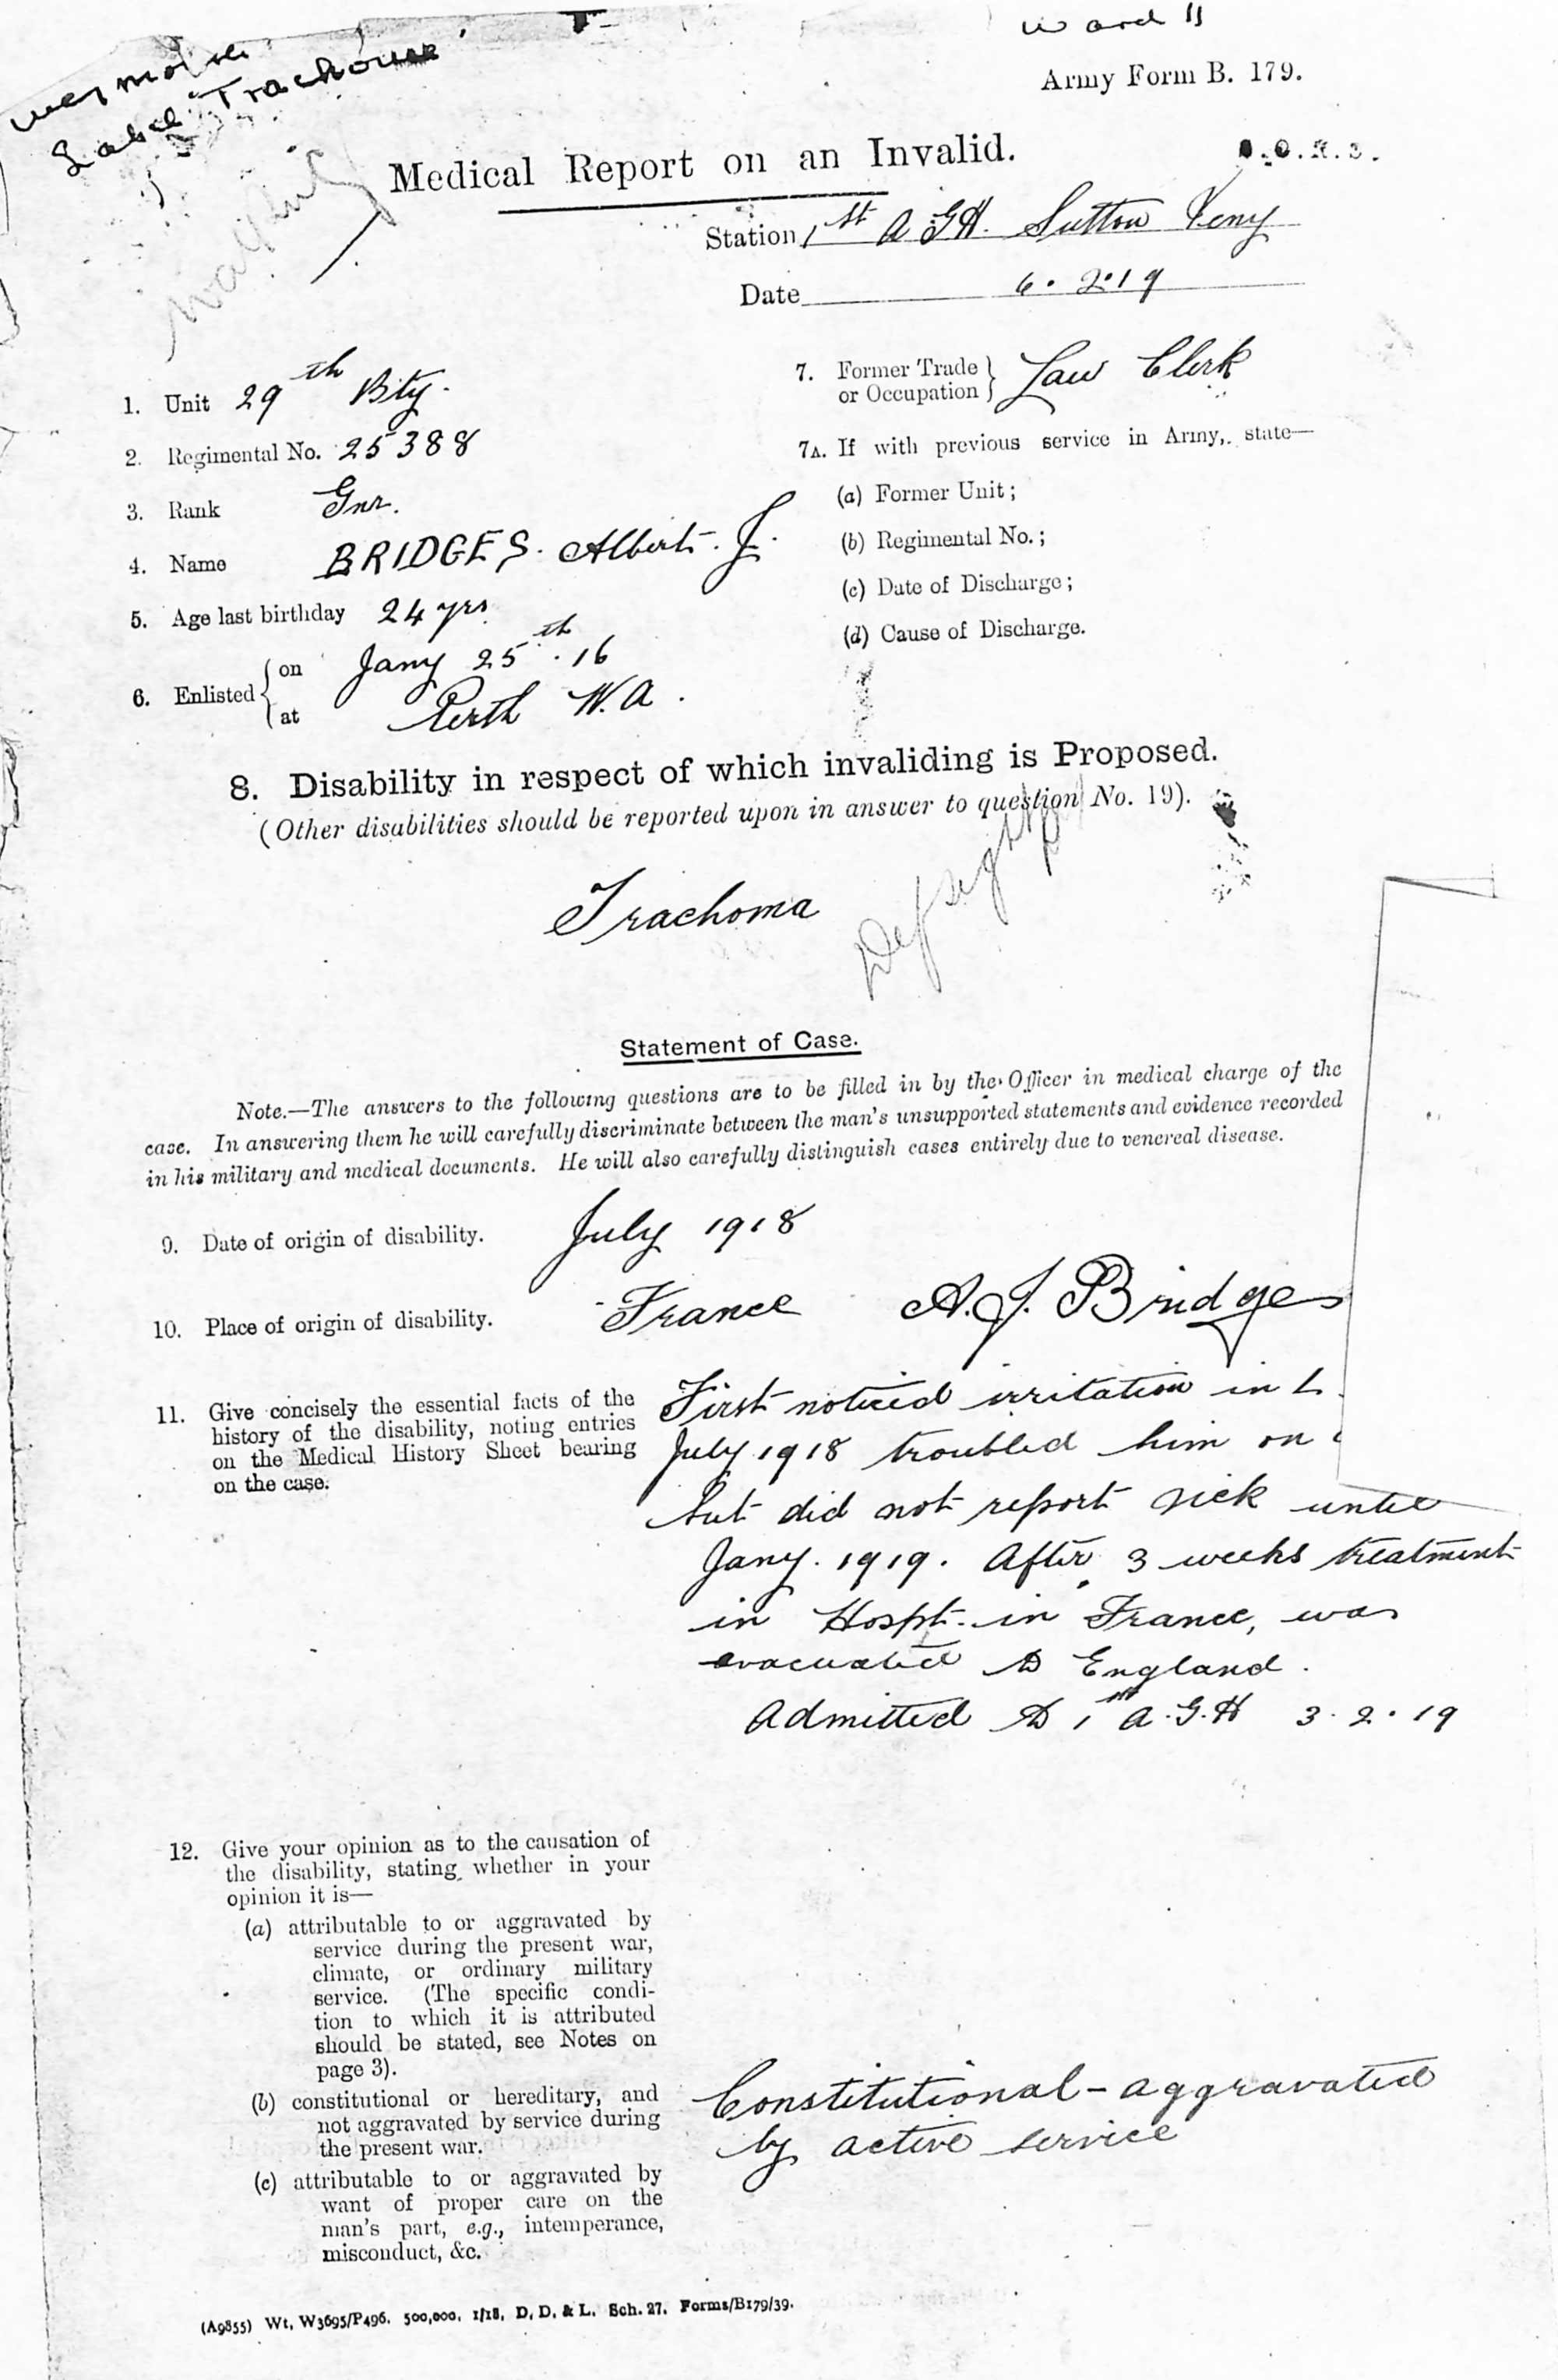 Ward 11
Army Form B. 179.
Weymouth
Label "Trachoma"
Medical Report on an Invalid.
Station 1st A G H. Sutton Veny
Date 6. 2.19
1. Unit 29th Bty.
2. Regimental No. 25388
3. Rank Gnr.
4. Name BRIDGES. Albert. J.
5. Age last birthday 24 yrs.
6. Enlisted { on Jany 25th. 16
at Perth W.A.
7. Former Trade
or Occupation } Law Clerk
7A. If with previous service in Army, state—
(a) Former Unit;
(b) Regimental No.;
(c) Date of Discharge;
(d) Cause of Discharge.
8. Disability in respect of which invaliding is Proposed.
(Other disabilities should be reported upon in answer to question No. 19).
Trachoma
Def sight
Statement of Case.
Note.—The answers to the following questions are to be filled in by the Officer in medical charge of the
case. In answering them he will carefully discriminate between the man's unsupported statements and evidence recorded
in his military and medical documents. He will also carefully distinguish cases entirely due to venereal disease.
9. Date of origin of disability. July 1918
10. Place of origin of disability. France A. J. Bridges
11. Give concisely the essential facts of the
history of the disability, noting entries
on the Medical History Sheet bearing
on the case.
First noticed irritation in
July 1918 troubled him on
but did not report sick until
Jany. 1919. After 3 weeks treatment
in Hospt. in France, was
evacuated to England.
Admitted to 1st A.G.H 3.2.19
12. Give your opinion as to the causation of
the disability, stating whether in your
opinion it is—
(a) attributable to or aggravated by
service during the present war,
climate, or ordinary military
service. (The specific condi-
tion to which it is attributed
should be stated, see Notes on
page 3).
(b) constitutional or hereditary, and
not aggravated by service during
the present war.
(c) attributable to or aggravated by
want of proper care on the
man's part, e.g., intemperance,
misconduct, &c.
Constitutional - aggravated
by active service
(A9855) Wt. W3695/P496. 500,000. 1/18. D. D. & L. Sch. 27. Forms/B179/39.